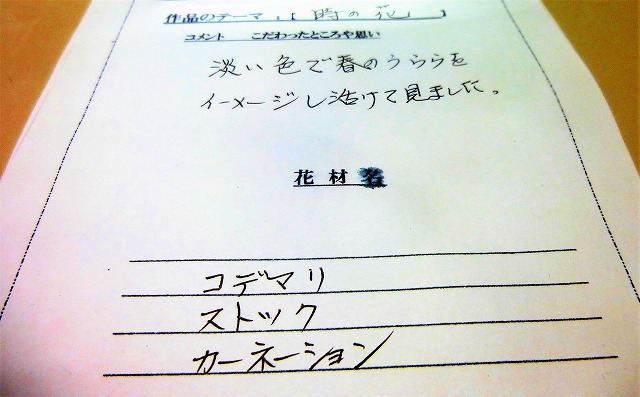 作品のテーマ:[ 時の花 ]
コメント こだわったところや思い
淡い色で春のうららを
イメージし活けて見ました。
花材名
コデマリ
ストック
カーネーション